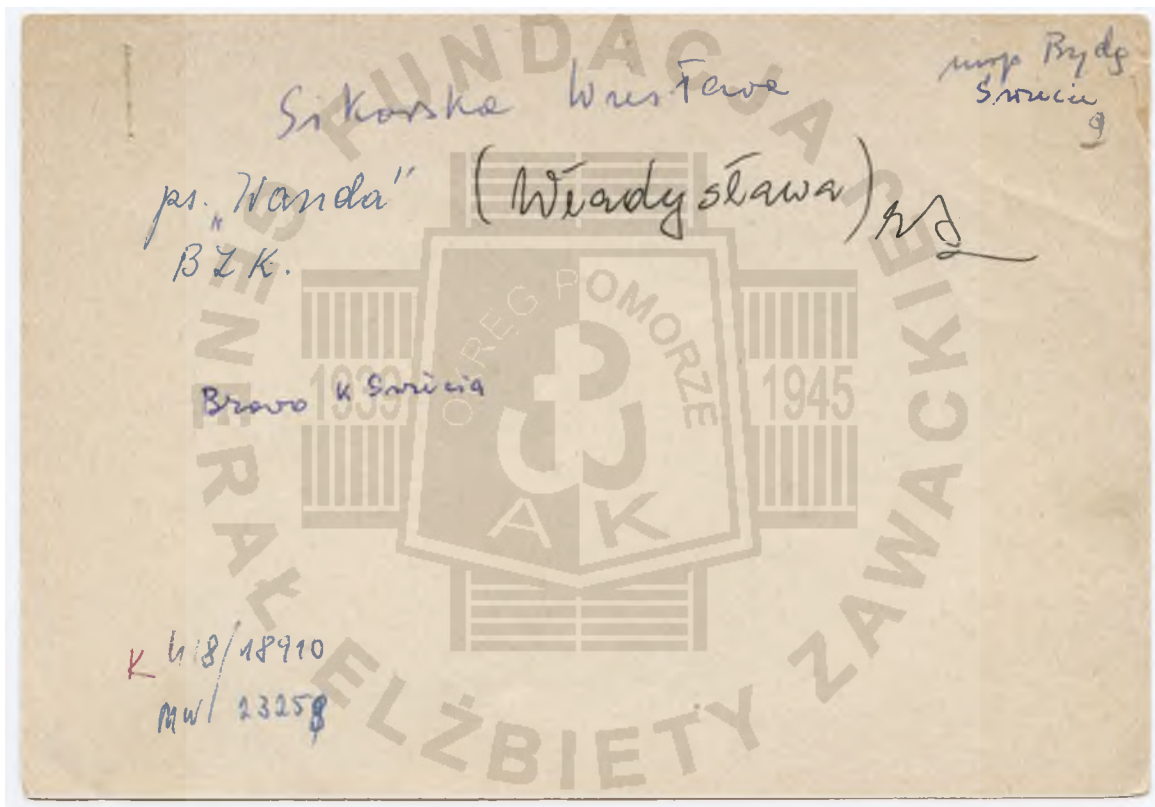 Sikorska Wiesława
Bydg
Świecie
9
ps. "Wanda" (Władysława)
BZK.
Bravo k Świecia
K 418/18910
MW/ 23258
FUNDACJA
GENERAŁ ELŻBIETY ZAWACKIEJ
OKRĘG POMORZE
1939 1945
AK